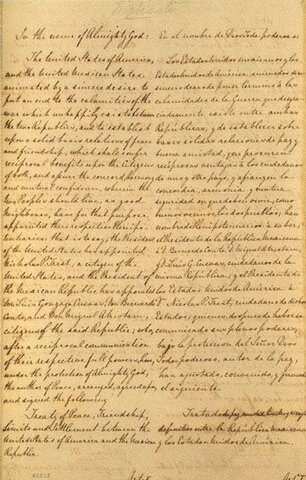 In the name of Almighty God:
The United States of America,
and the United Mexican States,
animated by a sincere desire to
put an end to the calamities of the
war which unhappily exists between
the two Republics, and to establish
upon a solid basis relations of peace
and friendship, which shall confer
reciprocal benefits upon the citizens
of both, and assure the concord, harmony
and mutual confidence, wherein the
two Peoples should live, as good
Neighbours, have for that purpose
appointed their respective Plenipo-
tentiaries: that is to say, the President of
the United States has appointed
Nicholas P. Trist, a citizen of the
United States, and the President of
the Mexican Republic has appointed
Don Luis Gonzaga Cuevas, Don Bernardo
Couto, and Don Miguel Atristain,
citizens of the said Republic; who,
after a reciprocal communication
of their respective full powers, have,
under the protection of Almighty God,
the author of Peace, arranged, agreed upon,
and signed the following
Treaty of Peace, Friendship,
Limits and Settlement between the
United States of America and the Mexican
Republic.
En el nombre de Dios Todopoderoso:
Los Estados Unidos mexicanos y los
Estados Unidos de América, animados de
un sincero deseo de poner término a las
calamidades de la Guerra que desgra-
ciadamente existe entre ambas
Repúblicas, y de establecer sobre
bases sólidas relaciones de paz y
buena amistad, que procuren
recíprocas ventajas a los ciudadanos
de uno y otro país, y afiancen la
concordia, armonía y mutua
seguridad en que deben vivir, como
buenos vecinos, los dos pueblos; han
nombrado
el Presidente de la República mexicana
a D. Bernardo Couto, D. Miguel Atristain,
y D. Luis G. Cuevas, ciudadanos de la
misma República; y el Presidente de
los Estados Unidos de América a
D. Nicolas P. Trist, ciudadano de dichos
Estados; quienes, después de haberse
comunicado sus plenos poderes,
bajo la protección del Señor Dios
Todopoderoso, autor de la paz,
han ajustado, convenido, y firmado
el siguiente
Tratado de paz, amistad, límites y arreglo
definitivo entre la República mexicana
y los Estados Unidos de América.